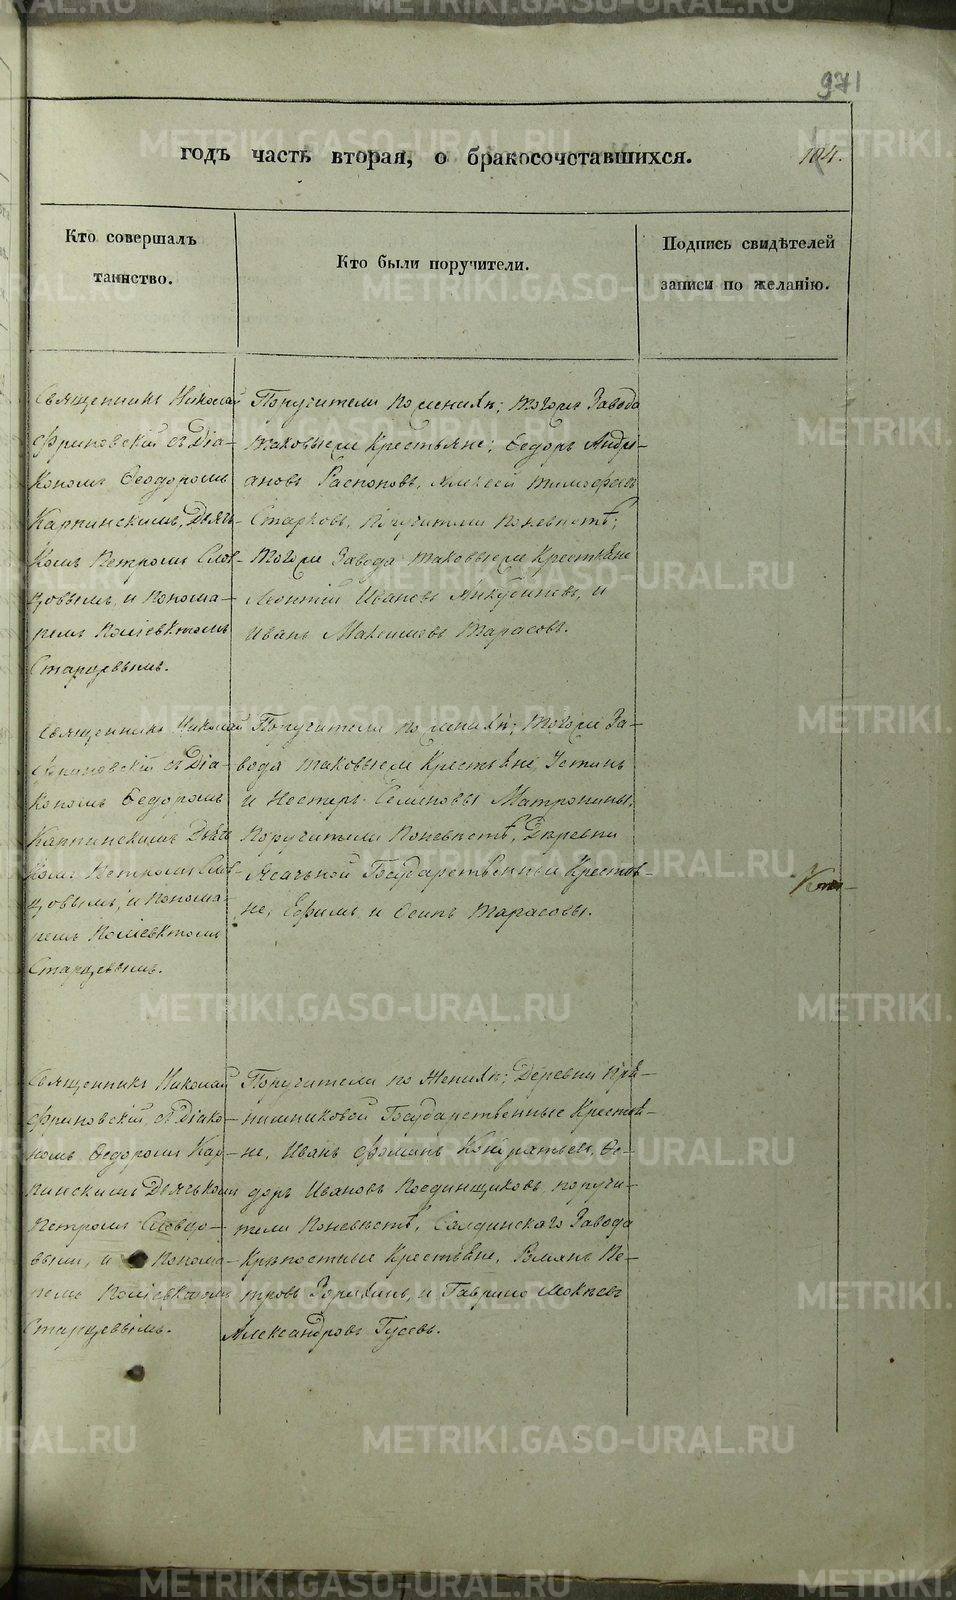 971
годъ часть вторая, о бракосочетавшихся.
104.
Кто совершалъ
таинство.
Кто были поручители.
Подпись свидѣтелей
записи по желанію.
Священникъ Николай
Фриновскій съ Діа-
кономъ Ѳеодоромъ
Карпинскимъ, Дьяч-
комъ Петромъ Слов-
цовымъ, и понома-
ремъ Поліевктомъ
Старцевымъ.
Поручители по женихѣ; тогожъ Завода
таковыеже Крестьяне; Ѳедоръ Андрі-
ановъ Распоповъ, Алексей Тимофеевъ
Старковъ, поручители поневѣстѣ;
тогоже Завода таковыеже Крестьяне
Леонтій Ивановъ Якубинъ, и
Иванъ Максимовъ Тарасовъ.
Священникъ Николай
Фриновскій съ Діа-
кономъ Ѳедоромъ
Карпинскимъ Дьяч
комъ Петромъ Слов-
цовымъ, и понома-
ремъ Поліевктомъ
Старцевымъ.
Поручители по женихѣ; тогоже За-
вода таковыеже Крестьяне, Устинъ
и Нестеръ Семеновы Матронины.
поручители поневѣстѣ, Деревни
Ясачьной Государственныи Крестья-
не, Ефимъ и Осипъ Тарасовы.
Священникъ Николай
Фриновскій, съ Діако-
номъ Ѳедоромъ Кар-
пинскимъ Дьячькомъ
Петромъ Словцо-
вымъ, и понома-
ремъ Поліевктомъ
Старцевымъ.
Поручители по женихѣ; Деревни Пря-
нишниковой Государственные Крестья-
не, Иванъ Фоминъ Кондратьевъ, Ѳе-
доръ Ивановъ Поединщиковъ, поручи-
тели поневѣстѣ, Салдинскаго Завода
Крѣпостные Крестьяне, Романъ Пе-
тровъ Зоряхинъ, и Гаврило Мокѣевъ
Александровъ Гусевъ.
METRIKI.GASO-URAL.RU